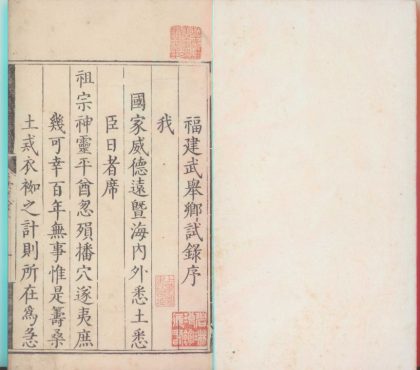 福建武舉鄉試錄序
我
國家威德遠曁海內外悉土悉
臣日者席
祖宗神靈平酋忽殞播穴遂夷庶
幾可幸百年無事惟是籌桑
土戒衣袽之計則所在爲急